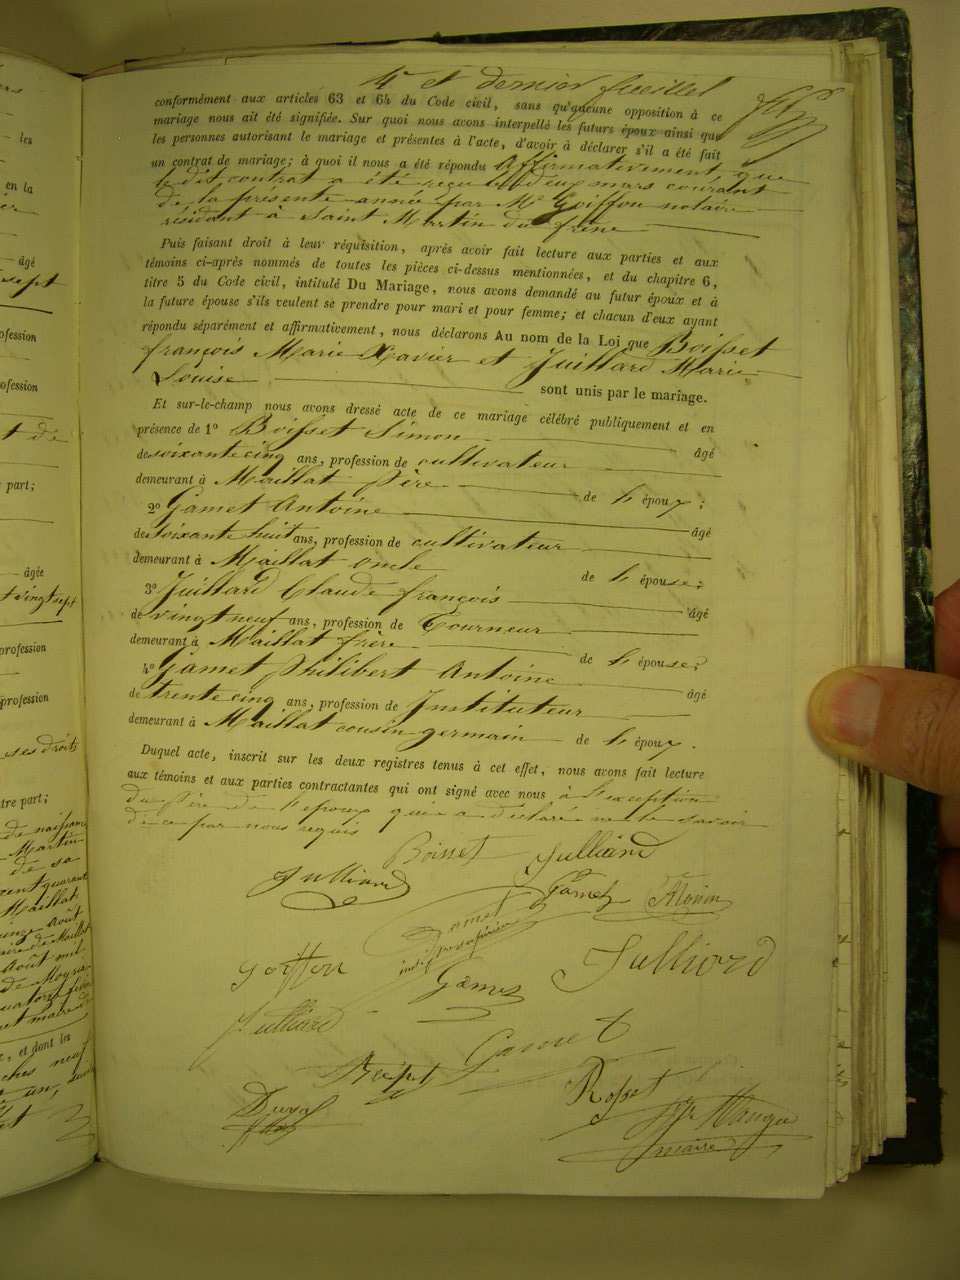 4e et dernier feuillet
conformément aux articles 63 et 64 du Code civil, sans qu'aucune opposition à ce
mariage nous ait été signifiée. Sur quoi nous avons interpellé les futurs époux ainsi que
les personnes autorisant le mariage et présentes à l'acte, d'avoir à déclarer s'il a été fait
un contrat de mariage; à quoi il nous a été répondu affirmativement, que
le dit contrat a été reçu le deux mars courant
de la présente année par Me Goiffon notaire
résidant à Saint Martin du frêne
Puis faisant droit à leur réquisition, après avoir fait lecture aux parties et aux
témoins ci-après nommés de toutes les pièces ci-dessus mentionnées, et du chapitre 6,
titre 5 du Code civil, intitulé Du Mariage, nous avons demandé au futur époux et à
la future épouse s'ils veulent se prendre pour mari et pour femme; et chacun d'eux ayant
répondu séparément et affirmativement, nous déclarons Au nom de la Loi que Boisset
françois Marie Xavier et Juillard Marie
Louise sont unis par le mariage.
Et sur-le-champ nous avons dressé acte de ce mariage célébré publiquement et en
présence de 1º Boisset Simon âgé
de soixante cinq ans, profession de cultivateur
demeurant à Maillat père de l'époux;
2º Gamet Antoine âgé
de soixante huit ans, profession de cultivateur
demeurant à Maillat oncle de l'épouse;
3º Juillard Claude françois âgé
de vingt neuf ans, profession de Tourneur
demeurant à Maillat frère de l'épouse;
4º Gamet Philibert Antoine âgé
de trente cinq ans, profession de Instituteur
demeurant à Maillat cousin germain de l'époux.
Duquel acte, inscrit sur les deux registres tenus à cet effet, nous avons fait lecture
aux témoins et aux parties contractantes qui ont signé avec nous à l'exception
du père de l'époux qui a déclaré ne le savoir
de ce par nous requis
Boisset Julliard
Julliard Gamet
Gamet
Goiffon Gamet Julliard
Julliard Gamet
Duval Rosset
maire
les
en la
âgé
sept
profession
part;
âgée
vingt sept
profession
profession
ses droits
tre part;
Martin
de sa
Maillat
Août
Août mil
, et dont les